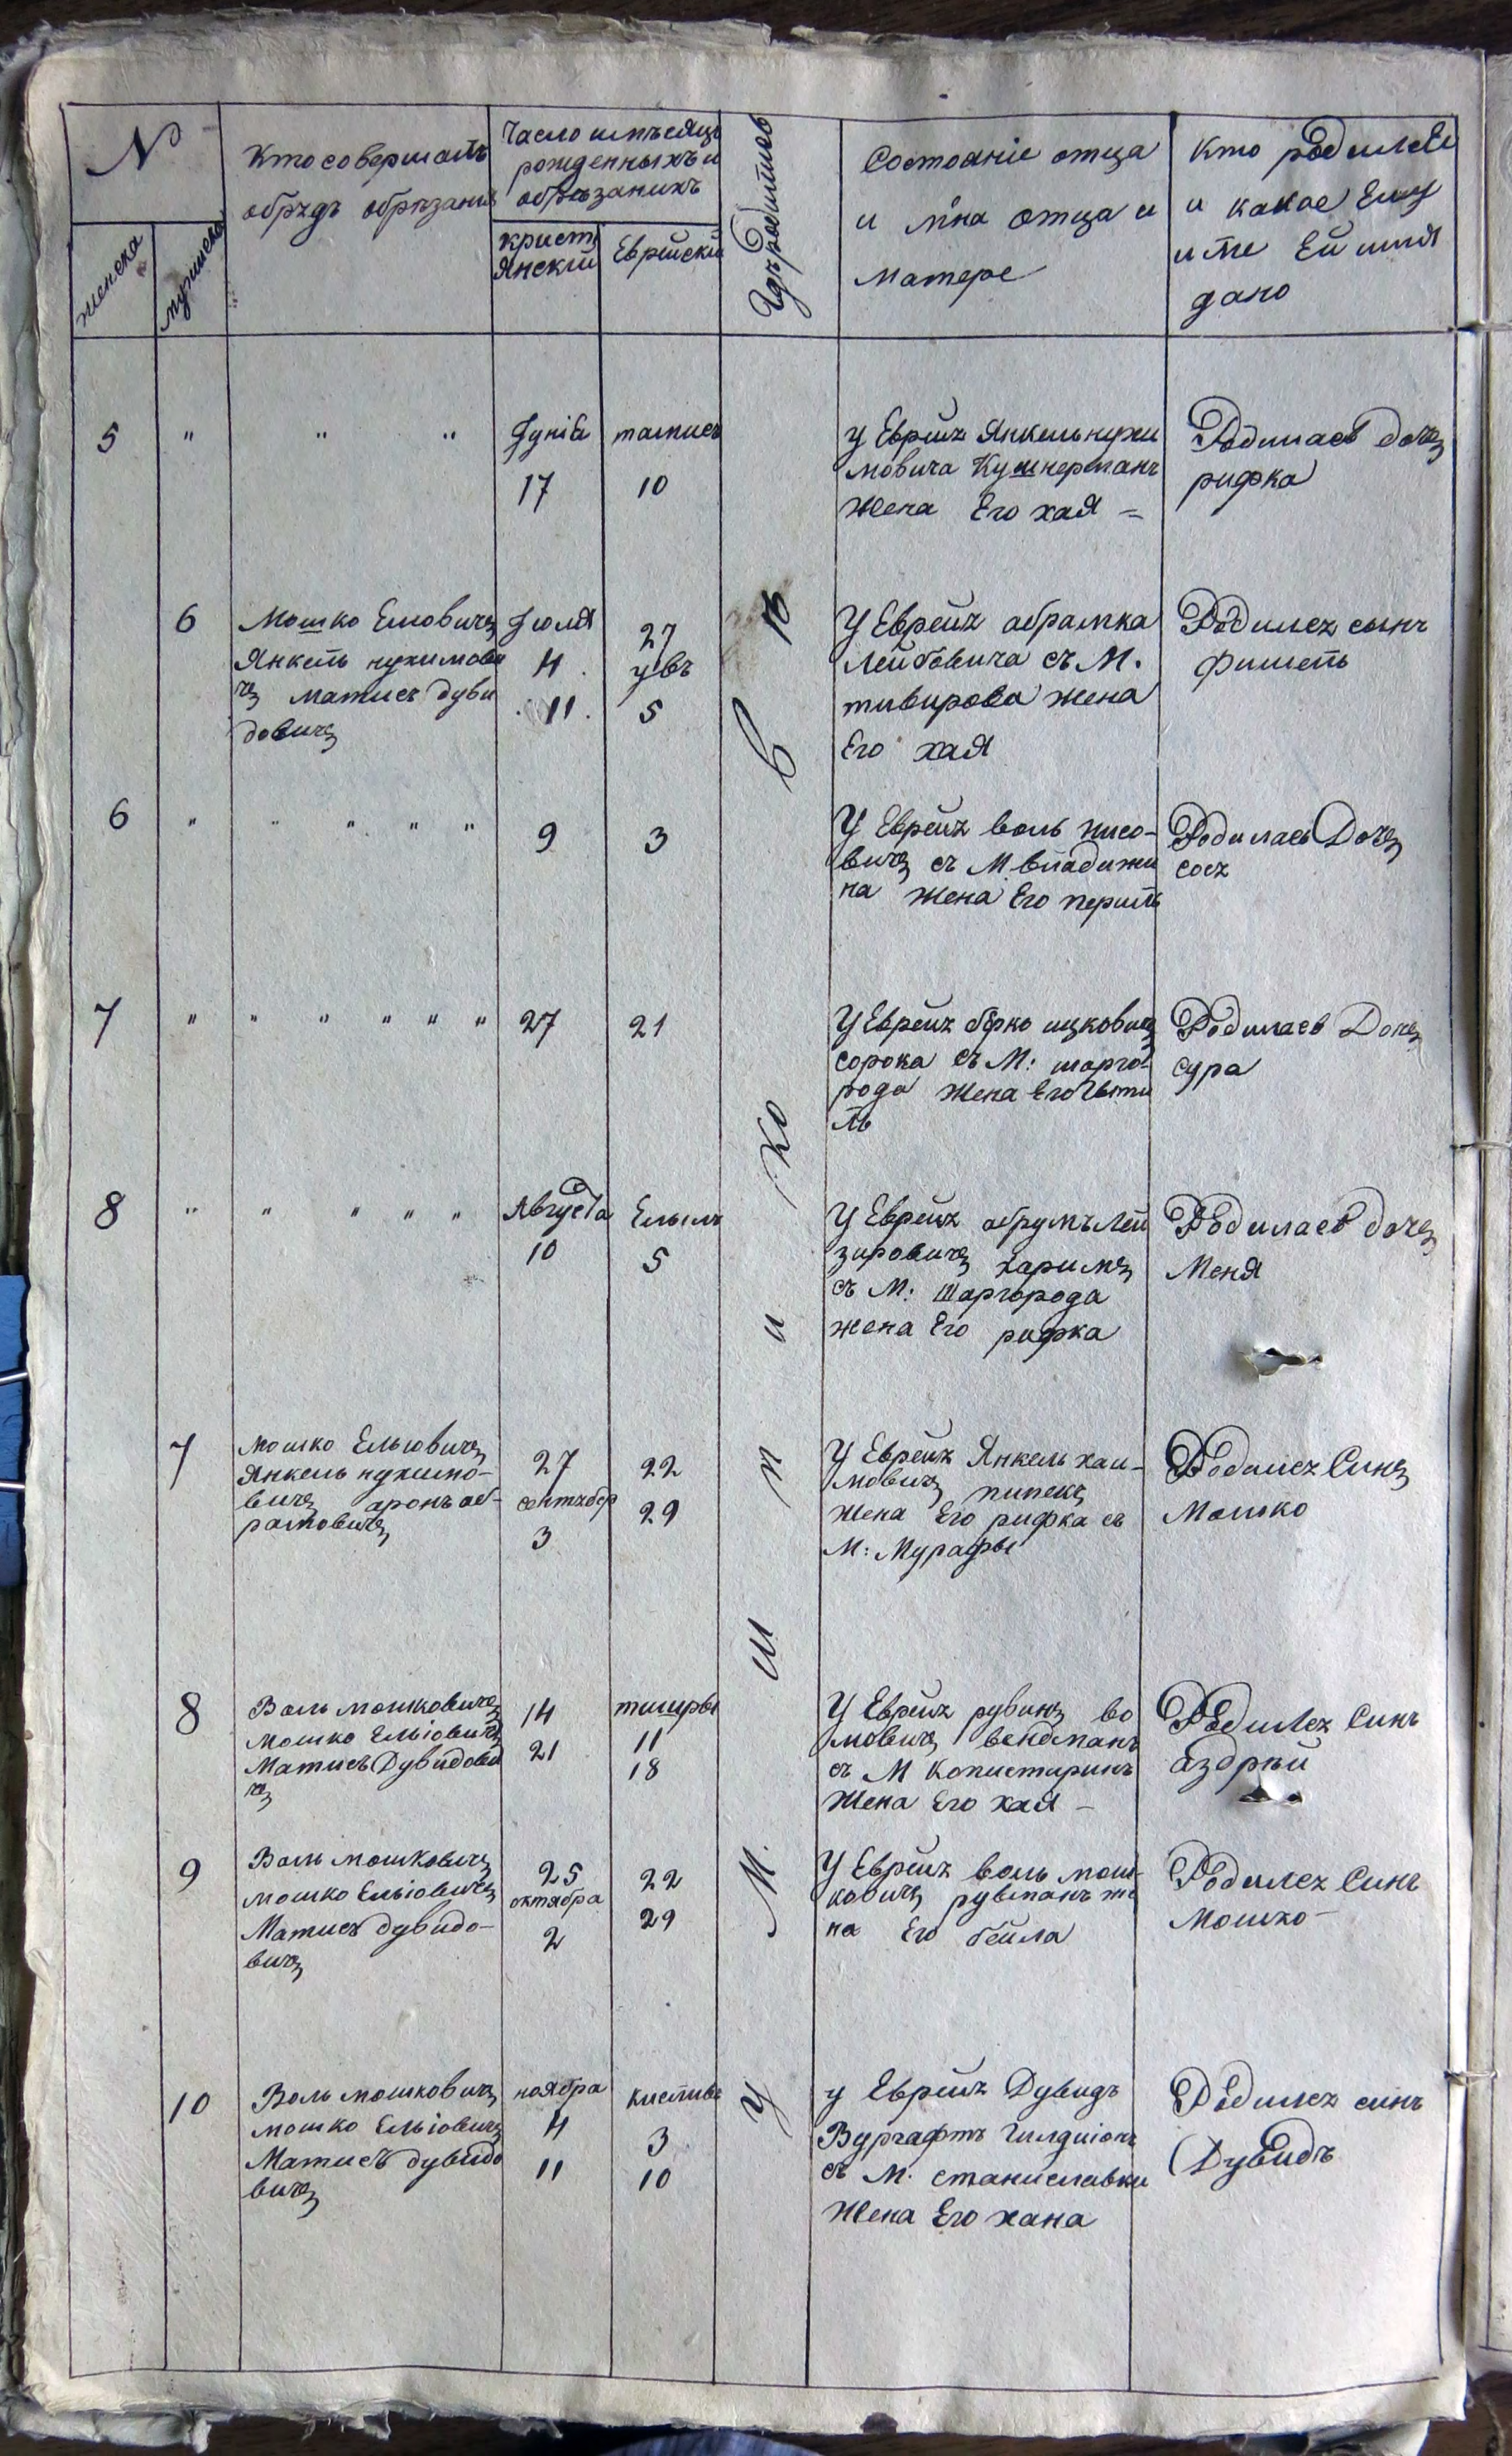 N
женска
мужеска
Кто совершалъ
обрядъ обрезания
Число и месяцъ
рожденныхъ и
обрезаникъ
христ
янский
Еврейский
Где родился
Состояніе отца
и імна отца и
матере
Кто родился
и какое Ему
или Ей имя
дано
въ
ко
и
п
ш
М.
у
5 " " "
Іуніа
17
тамисъ
10
у Еврея Янкель нухи
мовича Кушнерманъ
жена Его хая =
Родилась дочъ
рифка
6
Мошко Елиовичъ
Янкель нухимови
чъ матисъ дуви
довичъ
Іюля
4
11
27
увъ
5
У Еврея абрамка
Лейбовича съ М.
тивирова жена
Его хая
Родился сынъ
фишель
6 " " " " "
9
3
У Еврея воль нисо-
вичъ съ М владижи
на жена Его перилъ
Родилась Дочъ
сося
7 " " " " " "
27
21
У Еврея берко ицковичъ
сорока съ М: шарго-
рода жена Его
ль
Родилась Дочъ
сура
8 " " " " "
Августа
10
Елылъ
5
У Еврея абрумъ Лей
зировичъ
съ М: Шаргорода
жена Его рифка
Родилась дочъ
Меня
7
Мошко Ельовичъ
Янкель нухимо-
вичъ аронъ аб-
рамовичъ
27
сентябер
3
22
29
У Еврея Янкель хаи-
мовичъ пипекъ
жена Его рифка съ
М: Мурафы
Родился Синъ
Мошко
8
Воль мошковичъ
мошко Ельіовичъ
Матисъ Дувидови
чъ
14
21
тишры
11
18
У Еврея рувинъ во
мовичъ вендманъ
съ М копистиринъ
Жена Его хая -
Родился Синъ
аздрый
9
Воль мошковичъ
мошко Ельіовичъ
Матисъ дувидо-
вичъ
25
октября
2
22
29
У Еврея воль мош-
ковичъ рувманъ же
на Его бейла
Родился Синъ
Мошко-
10
Воль мошковичъ
мошко Ельіовичъ
Матисъ дувидо
вичъ
ноября
4
11
кислыве
3
10
у Еврея Дувидъ
Вургафтъ
съ М. станиславки
жена Его хана
Родился синъ
Дувидъ